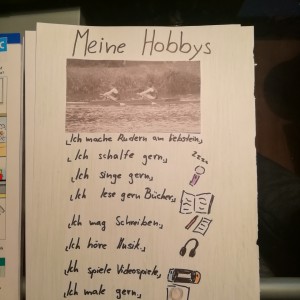 Meine Hobbys
„Ich mache Rudern am
„Ich schlafe gern„
zzzz
„Ich singe gern„
„Ich lese gern Bücher„
„Ich mag Schreiben„
„Ich höre Musik„
„Ich spiele Videospiele„
„Ich male gern„